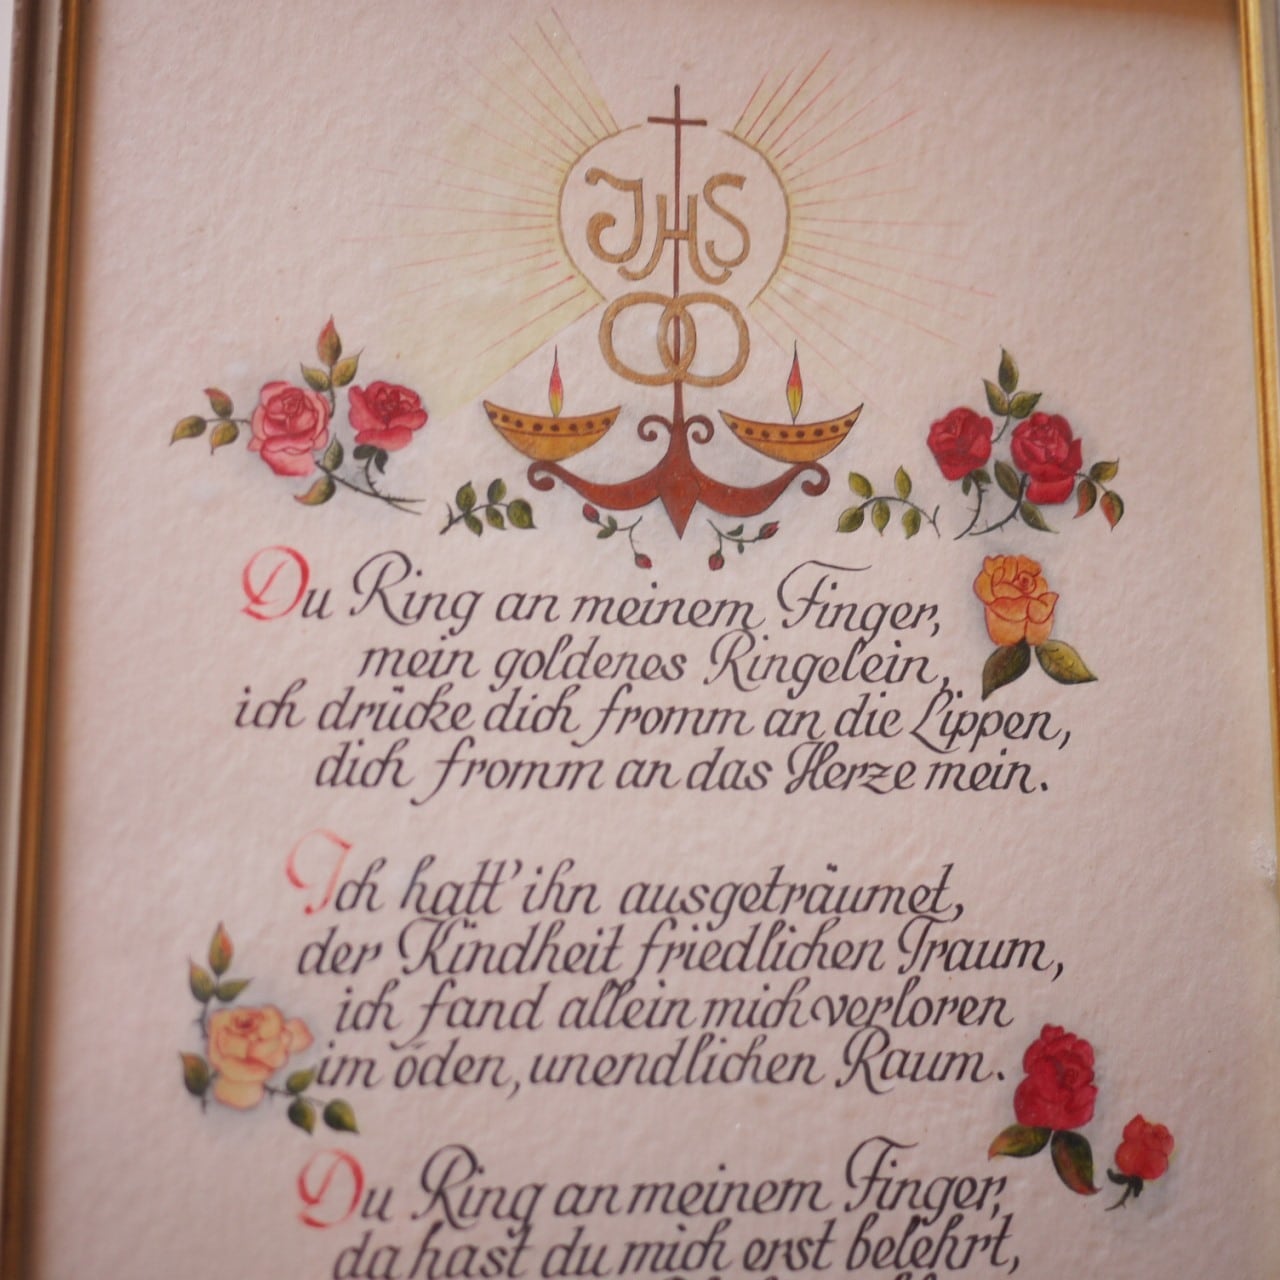 JHS
Du Ring an meinem Finger,
mein goldenes Ringelein,
ich drücke dich fromm an die Lippen,
dich fromm an das Herze mein.
Ich hatt' ihn ausgeträumet,
der Kindheit friedlichen Traum,
ich fand allein mich verloren
im öden, unendlichen Raum.
Du Ring an meinem Finger,
da hast du mich erst belehrt,